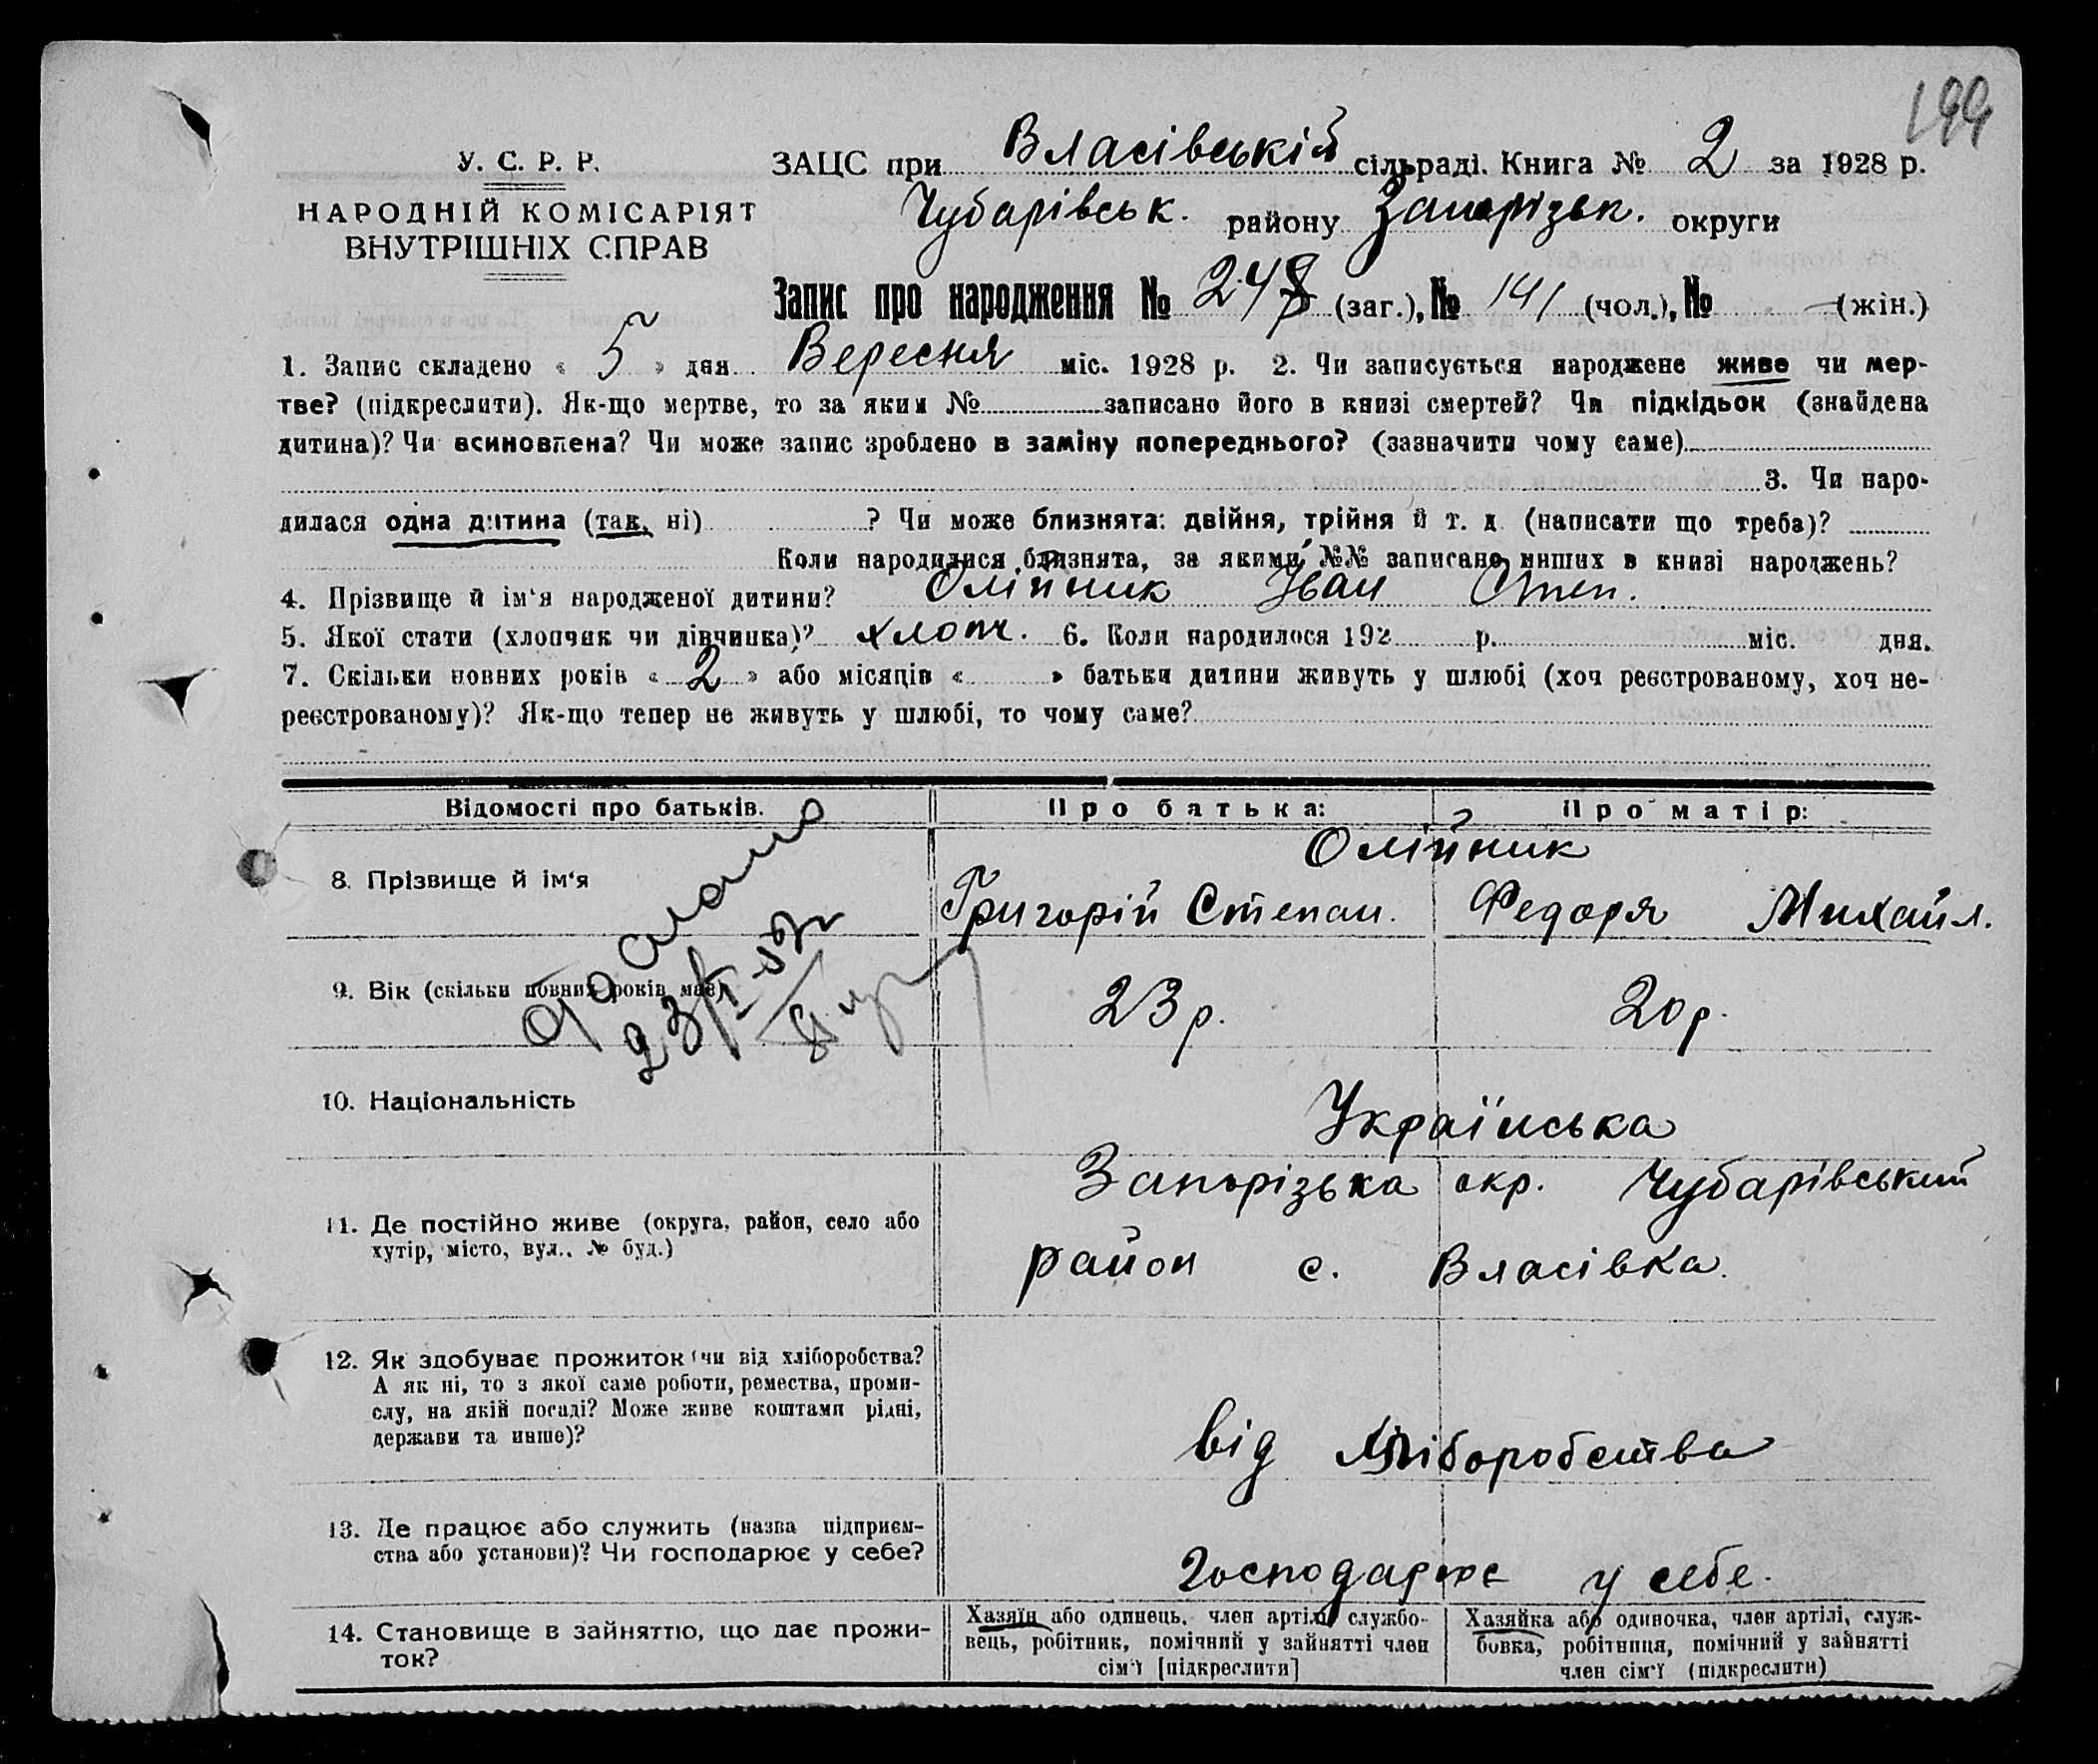 199
У. С. Р. Р.
НАРОДНІЙ КОМІСАРІЯТ
ВНУТРІШНІХ СПРАВ
ЗАЦС при Власівській сільраді. Книга № 2 за 1928 р.
Чубарівськ. району Запорізьк. округи
Запис про народження № 248 (заг.), № 141 (чол.), № — (жін.)
1. Запис складено « 5 » дня Вересня міс. 1928 р. 2. Чи записується народжене живе чи мер-
тве? (підкреслити). Як-що мертве, то за яким № записано його в книзі смертей? Чи підкідьок (знайдена
дитина)? Чи всиновлена? Чи може запис зроблено в заміну попереднього? (зазначити чому саме)
3. Чи наро-
дилася одна дитина (так, ні) ? Чи може близнята: двійня, трійня й т. д. (написати що треба)?
Коли народилися близнята, за якими №№ записано инших в книзі народжень?
4. Прізвище й ім‘я народженої дитини? Олійник Іван Степ.
5. Якої стати (хлопчик чи дівчинка)? хлопч. 6. Коли народилося 192 р. міс. дня.
7. Скільки повних років « 2 » або місяців « » батьки дитини живуть у шлюбі (хоч реєстрованому, хоч не-
реєстрованому)? Як-що тепер не живуть у шлюбі, то чому саме?
Відомості про батьків. Про батька: Про матір:
Олійник
8. Прізвище й ім‘я Григорій Степан. Федоря Михайл.
9. Вік (скільки повних років має) 23 р. 20 р.
10. Національність Українська
11. Де постійно живе (округа, район, село або
хутір, місто, вул., № буд.)
Запорізька окр. Чубарівський
район с. Власівка.
12. Як здобуває прожиток (чи від хліборобства?
А як ні, то з якої саме роботи, ремества, проми-
слу, на якій посаді? Може живе коштами рідні,
держави та инше)?
від хліборобства
13. Де працює або служить (назва підприєм-
ства або установи)? Чи господарює у себе?
Господарює у себе.
14. Становище в зайняттю, що дає прожи-
ток?
Хазяїн або одинець, член артілі, службо-
вець, робітник, помічний у зайнятті член
сім‘ї [підкреслити]
Хазяйка або одиночка, член артілі, служ-
бовка, робітниця, помічний у зайнятті
член сім‘ї (підкреслити)